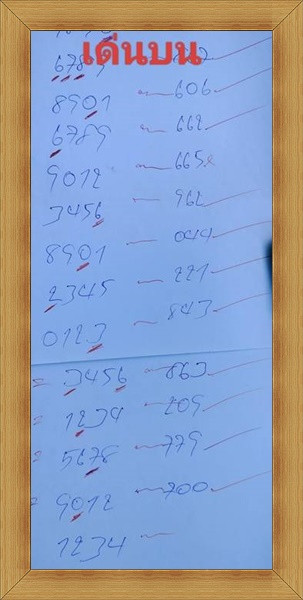 เด่นบน
6789
8901 — 606
6789 — 662
9012 — 665
3456 — 962
8901 — 044
2345 — 221
0123 — 843
= 3456 — 863
= 1234 — 209
= 5678 — 779
= 9012 — 700
1234 —